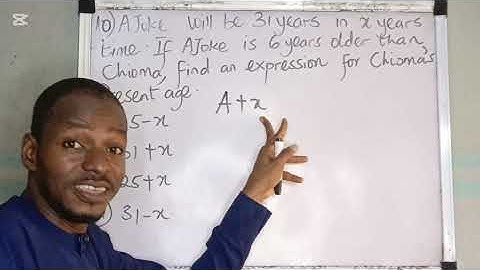 10) AJoke will be 31 years in x years
time. If AJoke is 6 years older than
Chioma, find an expression for Chioma's
resent age.
A+x
5-x
31+x
25+x
) 31-x